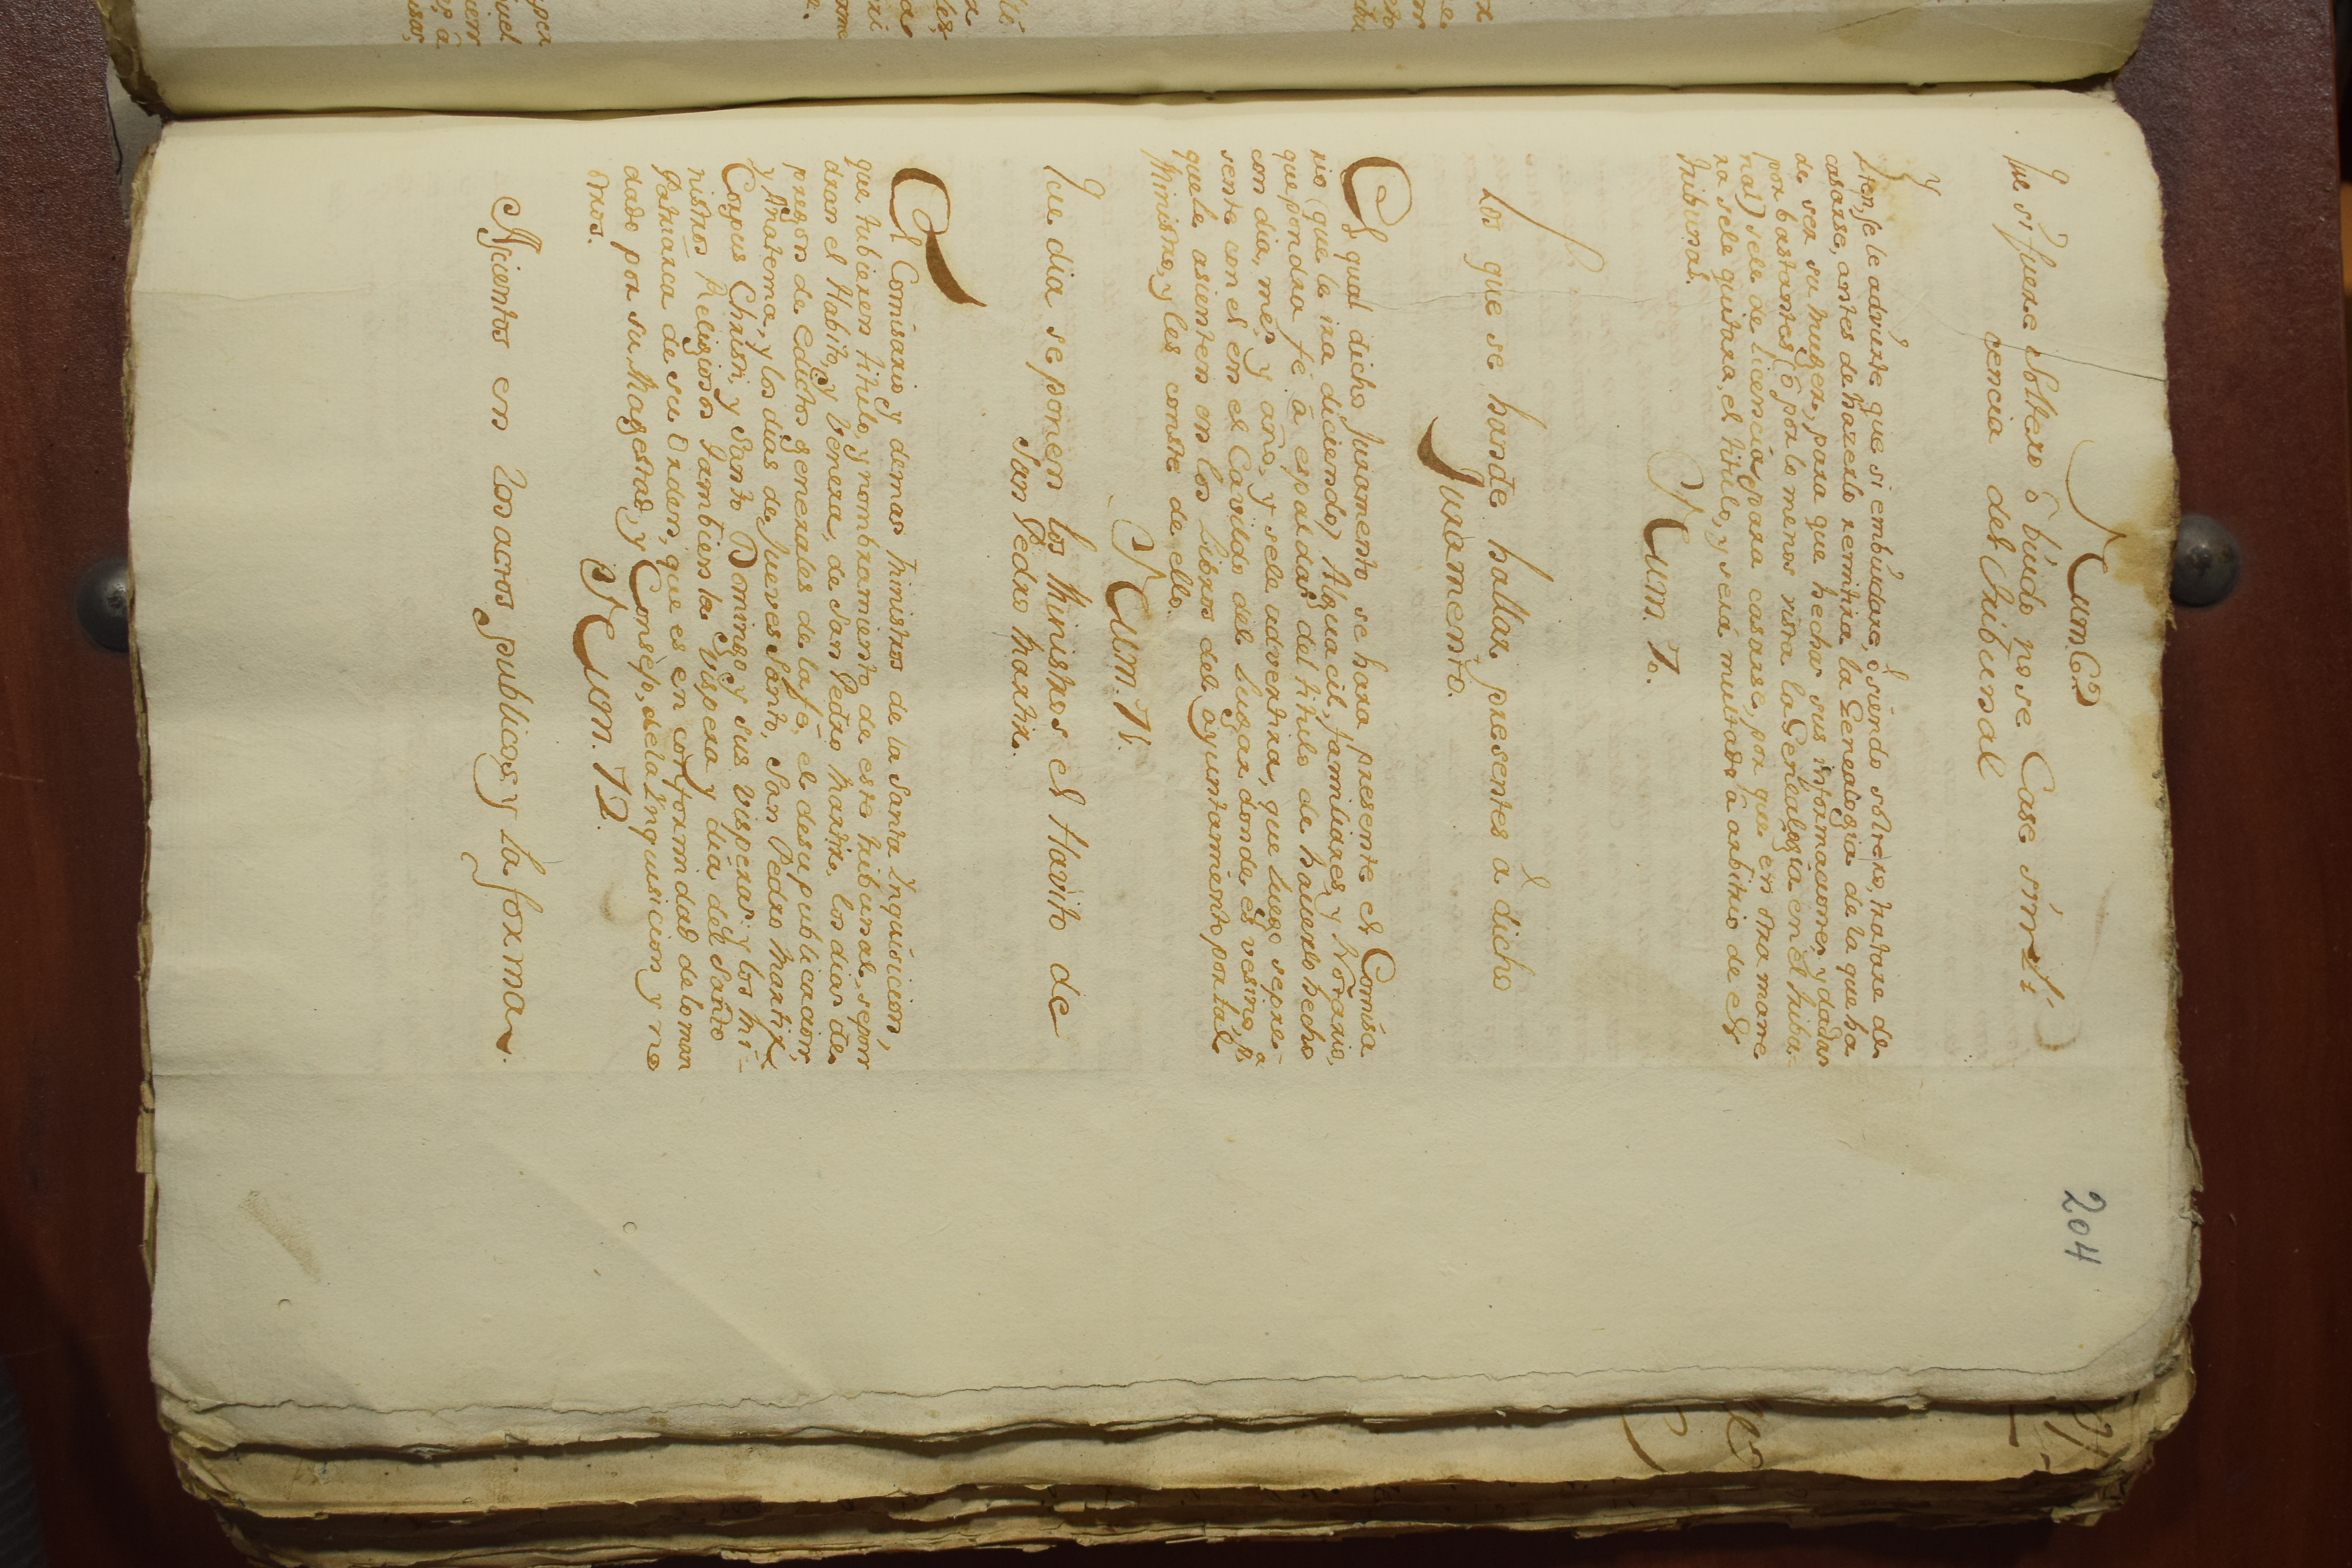 204
Num. 69
Que si fuere Soltero ô biúdo no se Case sin li
cencia del tribunal
Yten, se le advierte que si embiudare, ó siendo soltero, tratare de
casarse, antes de hazerlo remitira la Genealogia de la que ha
de ser su muger, para que hechas sus informaciones, y dadas
por bastantes (ô por lo menos vista la Genealogia en el tribu-
nal) se le de licencia para casarse, por que en otra mane
ra se le quitara, el titulo, y será multado â arbitrio de el
tribunal.
Num. 70.
Los que se hande hallar presentes a dicho
Juramento.
El qual dicho Juramento se hara presente el Comisa
rio (que le ira diciendo) Alguacil, familiares, y Notario,
que pondra fé â espaldas del titulo de haverlo hecho
con dia, mes, y año, y se le advertira, que luego se pre-
sente con el en el Cavildo del Lugar donde es vesino, pâ
que le asienten en los libros del ayuntamiento por tal
Ministro, y les conste de ello.
Num. 71.
Que dia se ponen los Ministros el Havito de
San Pedro Martir.
El Comisario y demas Ministros de la Santa Ynquisicion,
que tubieren titulo, y nombramiento de este tribunal, se pon
dran el Habito, y Venera, de San Pedro Martir, los dias de
pregon de edictos generales de la fe, el de su publicacion,
y Anatema, y los dias de Jueves Santo, San Pedro Martir
Corpus Christi, y Santo Domingo y sus Visperas, y los Mi-
nistros Religiosos tambien la Vispera y dia del Santo
Patriarca de su Orden, que es en conformidad de lo man
dado por su Magestad, y Consejo, de la Ynquisicion y no
otros.
Num. 72.
Asientos en los actos publicos, y la forma.